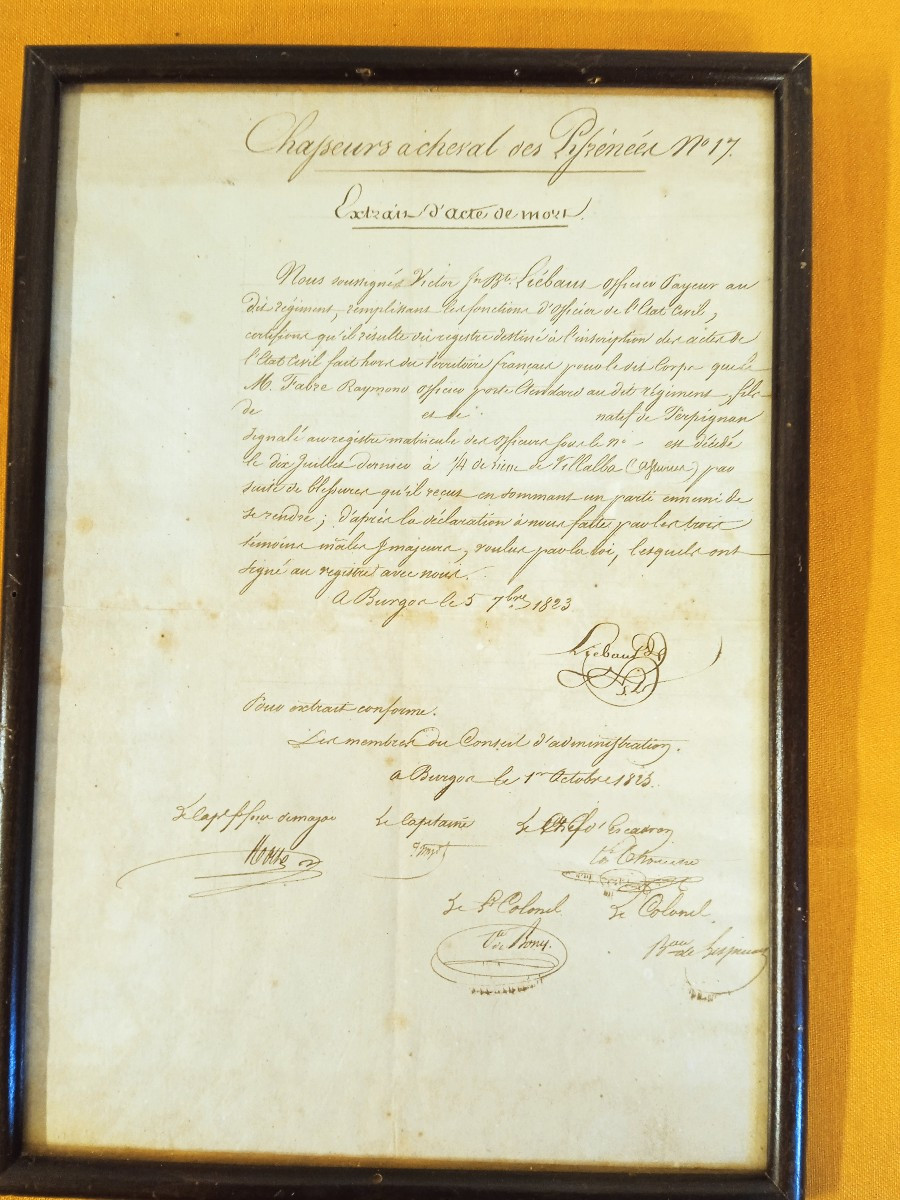 Chasseurs à cheval des Pyrénées No 17.
Extrait d'acte de mort.
Nous soussigné Victor Jn Bte Liébaut officier Payeur au
dit régiment remplissant les fonctions d'officier de l'Etat Civil,
certifions qu'il résulte du registre destiné à l'inscription des actes de
l'Etat Civil fait hors du territoire français pour le dit Corps que le
M. Fabre Raymond officier porte Etendard au dit régiment, fils
de et de natif de Perpignan
signalé au registre matricule des officiers sous le no est décédé
le dix Juillet dernier à 1/4 de lieue de Villalba (Asturies) par
suite de blessures qu'il reçut en sommant un parti ennemi de
se rendre; d'après la déclaration à nous faite par les trois
témoins mâles & majeurs, voulus par la loi, lesquels ont
signé au registre avec nous.
A Burgos le 5 7bre 1823
Liébaut
Pour extrait conforme.
Les membres du Conseil d'administration.
a Burgos le 1er Octobre 1823.
Le Capt ff de major Le Capitaine Le Chef d'Escadron
Le Lt Colonel Le Colonel
Cte de
Bon de